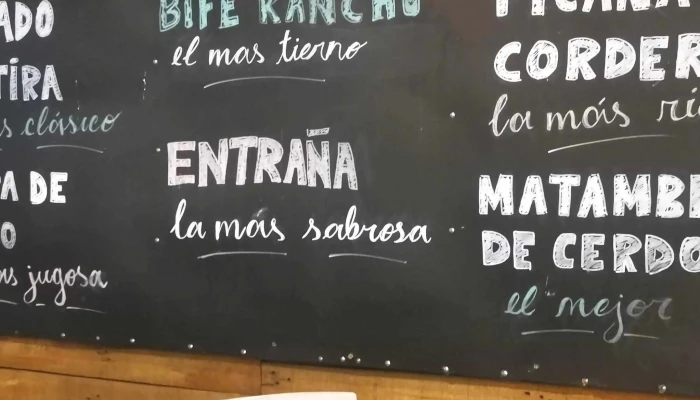 ADO
TIRA
s clásico
A DE
O
as jugosa
BIFE RANCHO
el mas tierno
ENTRAÑA
la mas sabrosa
CORDER
la más ri
MATAMB
DE CERDO
el mejor